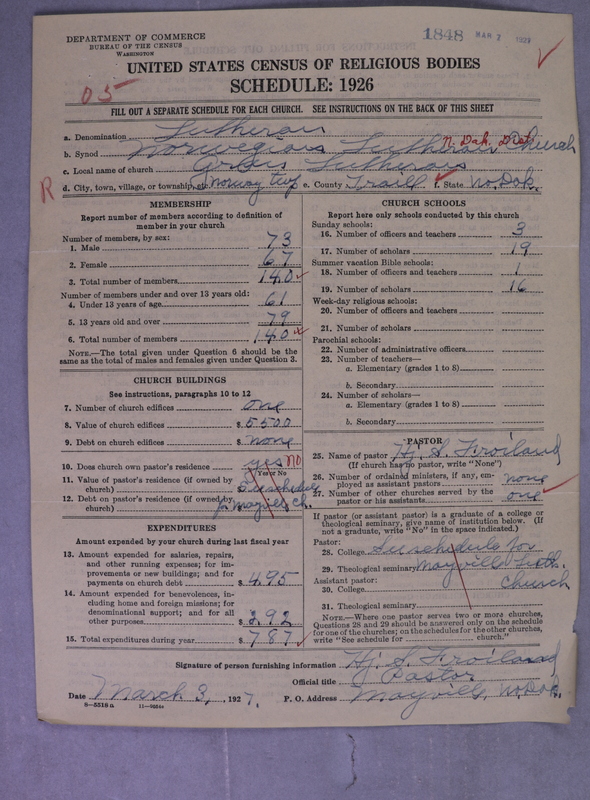 DEPARTMENT OF COMMERCE
BUREAU OF THE CENSUS
WASHINGTON
1848 MAR 2 1927
UNITED STATES CENSUS OF RELIGIOUS BODIES
SCHEDULE: 1926
05
FILL OUT A SEPARATE SCHEDULE FOR EACH CHURCH. SEE INSTRUCTIONS ON THE BACK OF THIS SHEET
a. Denomination Lutheran
N. Dak. Dist
b. Synod Norwegian Lutheran Church
c. Local name of church Lutheran
R d. City, town, village, or township, etc. Norway twp e. County Traill f. State No. Dak.
MEMBERSHIP
Report number of members according to definition of member in your church
Number of members, by sex:
1. Male 73
2. Female 67
3. Total number of members 140
Number of members under and over 13 years old:
4. Under 13 years of age 61
5. 13 years old and over 79
6. Total number of members 140
NOTE.—The total given under Question 6 should be the
same as the total of males and females given under Question 3.
CHURCH BUILDINGS
See instructions, paragraphs 10 to 12
7. Number of church edifices one
8. Value of church edifices $ 5500
9. Debt on church edifices $ none
10. Does church own pastor's residence yes no
Yes or No
11. Value of pastor's residence (if owned by
church) $ See schedule
12. Debt on pastor's residence (if owned by
church) for Mayville ch.
EXPENDITURES
Amount expended by your church during last fiscal year
13. Amount expended for salaries, repairs,
and other running expenses; for im-
provements or new buildings; and for
payments on church debt $ 495
14. Amount expended for benevolences, in-
cluding home and foreign missions; for
denominational support; and for all
other purposes $ 292
15. Total expenditures during year $ 787
CHURCH SCHOOLS
Report here only schools conducted by this church
Sunday schools:
16. Number of officers and teachers 3
17. Number of scholars 19
Summer vacation Bible schools:
18. Number of officers and teachers 1
19. Number of scholars 16
Week-day religious schools:
20. Number of officers and teachers
21. Number of scholars
Parochial schools:
22. Number of administrative officers
23. Number of teachers—
a. Elementary (grades 1 to 8)
b. Secondary
24. Number of scholars—
a. Elementary (grades 1 to 8)
b. Secondary
PASTOR
25. Name of pastor Hj. S. Froiland
(If church has no pastor, write "None")
26. Number of ordained ministers, if any, em-
ployed as assistant pastors none
27. Number of other churches served by the
pastor or his assistants one
If pastor (or assistant pastor) is a graduate of a college or
theological seminary, give name of institution below. (If
not a graduate, write "No" in the space indicated.)
Pastor:
28. College See schedule for
29. Theological seminary Mayville Luth.
Assistant pastor: Church
30. College
31. Theological seminary
NOTE.—Where one pastor serves two or more churches,
Questions 28 and 29 should be answered only on the schedule
for one of the churches; on the schedules for the other churches,
write "See schedule for ______ church."
Signature of person furnishing information Hj. S. Froiland
Official title Pastor
Date March 3, 1927. P. O. Address Mayville, No. Dak.
8—5518 a